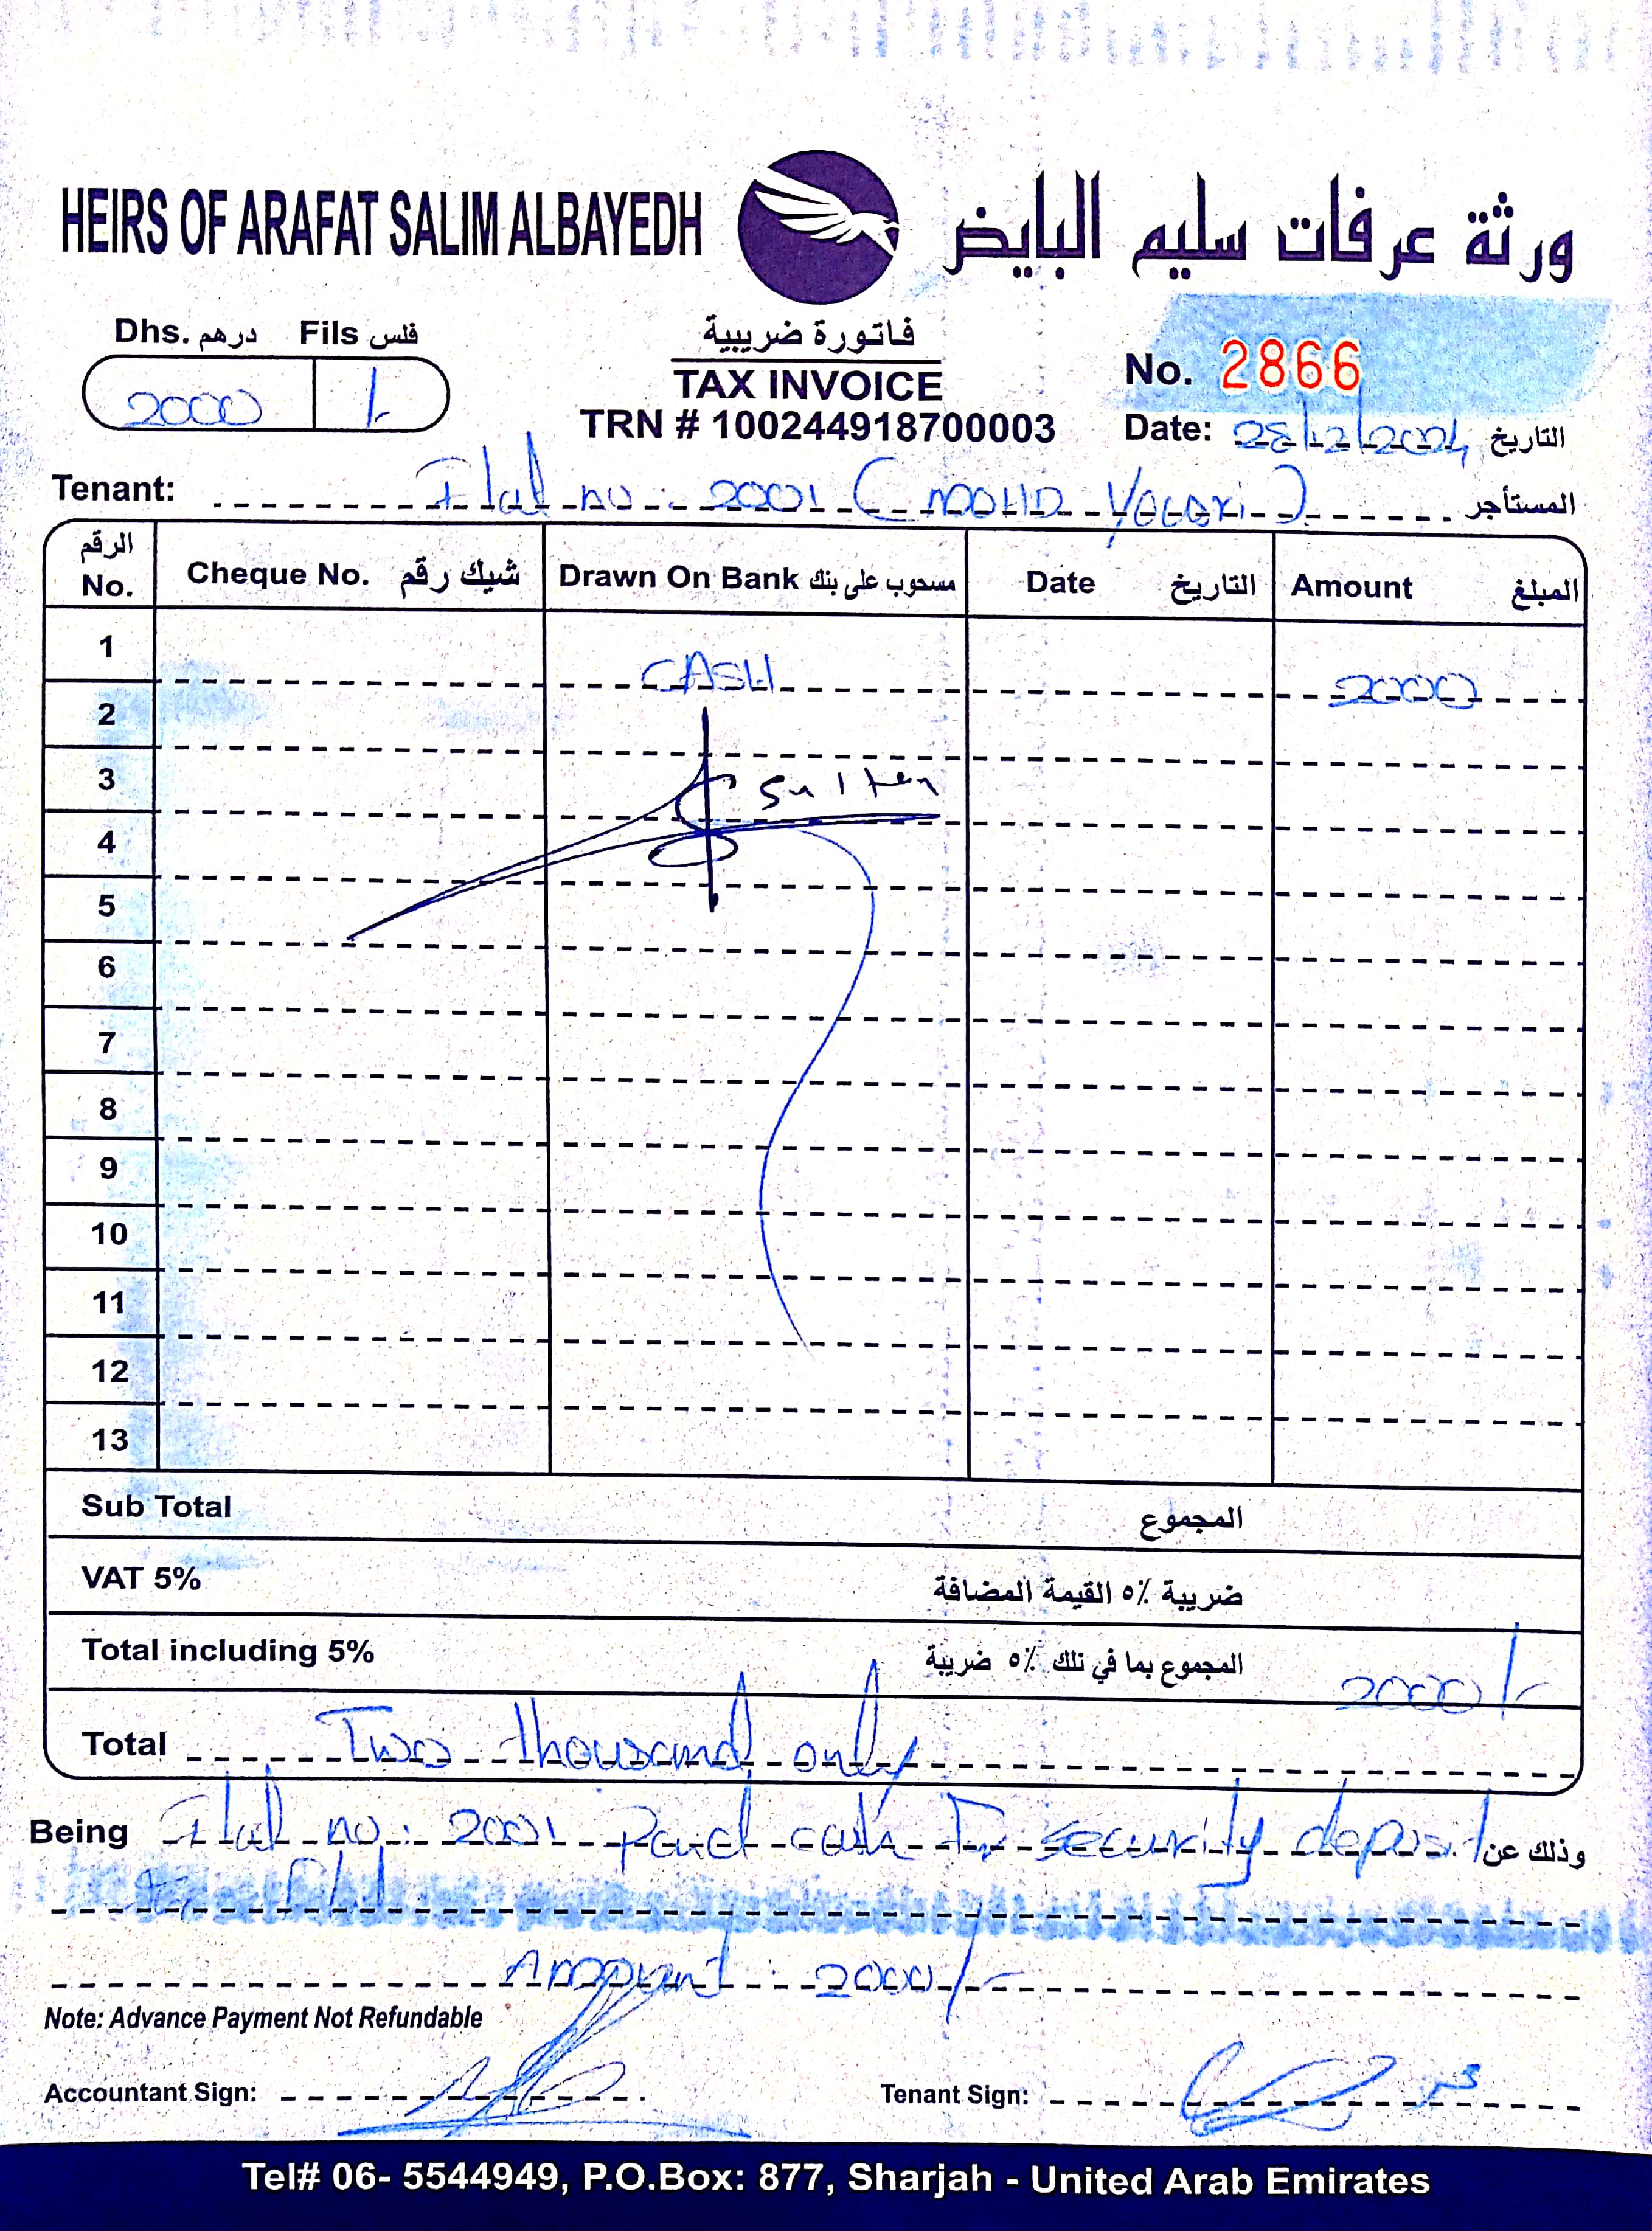 HEIRS OF ARAFAT SALIM ALBAYEDH ورثة عرفات سليم البايض
Dhs. درهم Fils فلس
2000 /-
فاتورة ضريبية
TAX INVOICE
TRN # 100244918700003
No. 2866
Date: 28/12/2024 التاريخ
Tenant: Flat no: 2001 (MOHD Yacoxi) المستأجر
الرقم No. Cheque No. شيك رقم Drawn On Bank مسحوب على بنك Date التاريخ Amount المبلغ
1 CASH 2000
2
3 Sultan
4
5
6
7
8
9
10
11
12
13
Sub Total المجموع
VAT 5% ضريبة ٥٪ القيمة المضافة
Total including 5% المجموع بما في تلك ٥٪ ضريبة 2000/-
Total Two thousand only
Being Flat no: 2001 Paid cash For security deposit وذلك عن
Amount: 2000/-
Note: Advance Payment Not Refundable
Accountant Sign: Tenant Sign:
Tel# 06- 5544949, P.O.Box: 877, Sharjah - United Arab Emirates